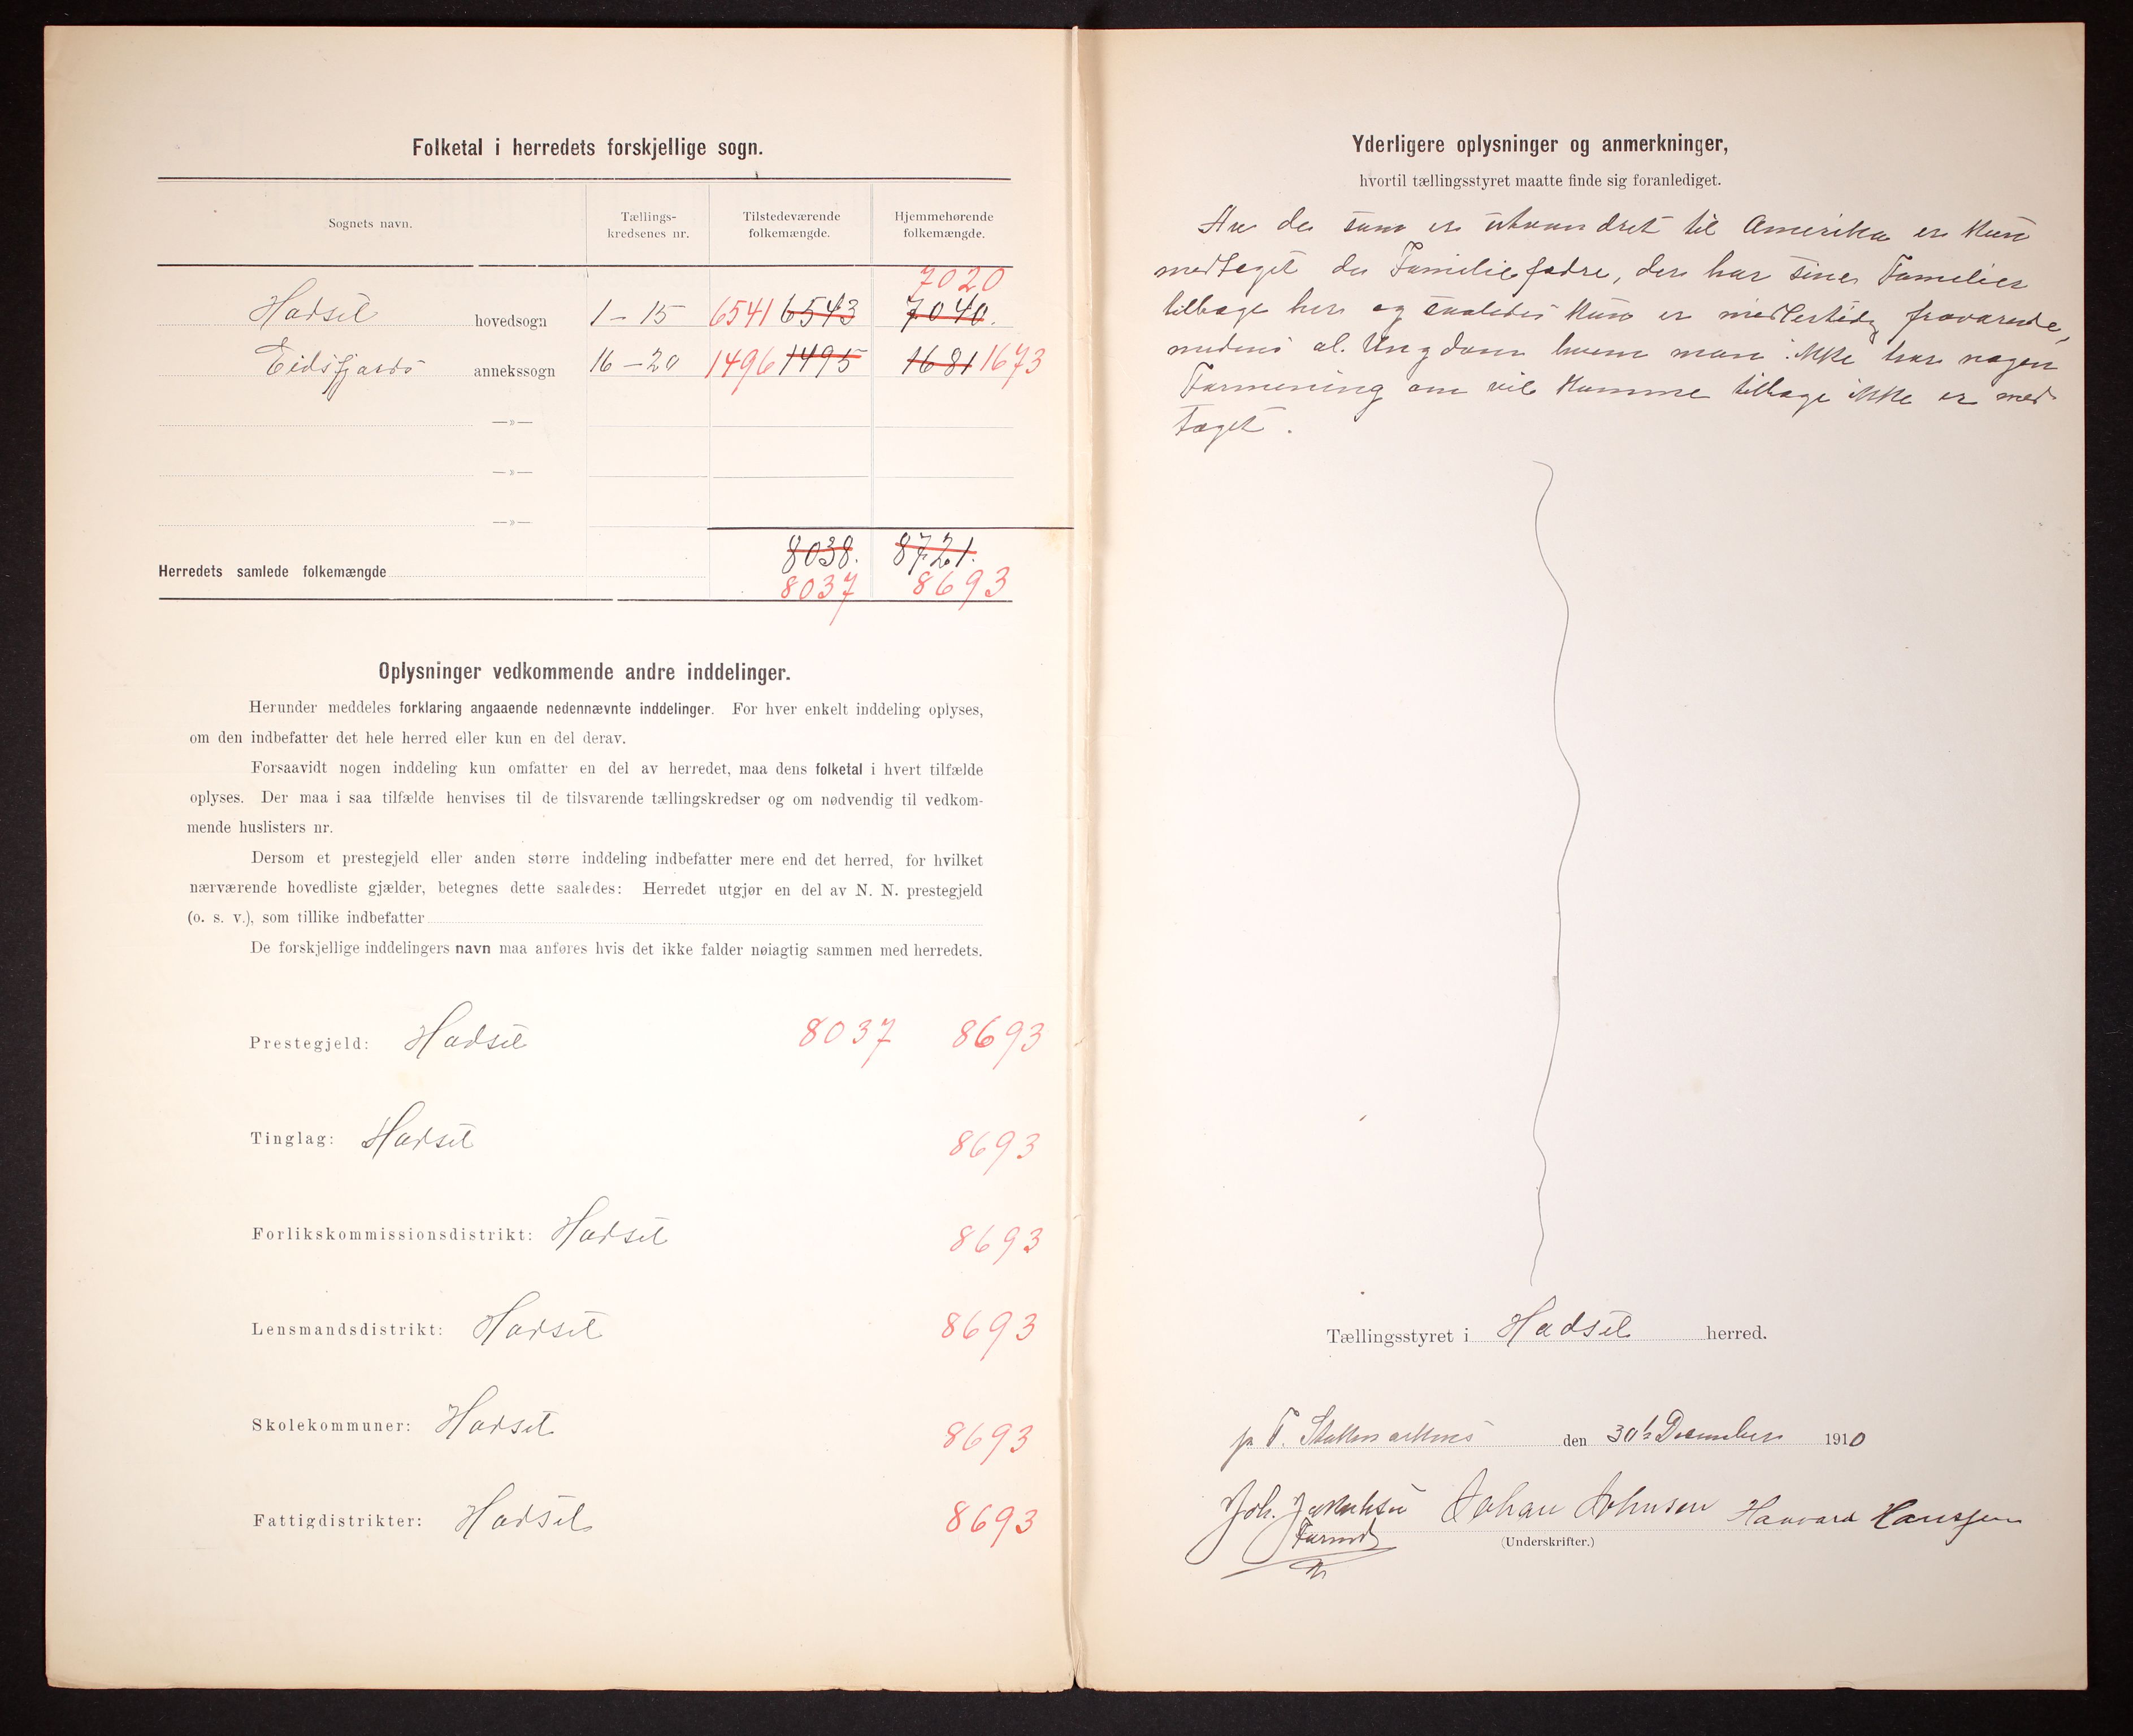 Folketal i herredets forskjellige sogn.
Sognets navn.
Tællings-
kredsenes nr.
Tilstedeværende
folkemængde.
Hjemmehørende
folkemængde.
7020
Hadsel hovedsogn 1 - 15 6541 6543 7040.
Eidsfjord annekssogn 16 - 20 1496 1495 1681 1673
—»—
—»—
—»—
8038. 8721.
Herredets samlede folkemængde
8037 8693
Oplysninger vedkommende andre inddelinger.
Herunder meddeles forklaring angaaende nedennævnte inddelinger. For hver enkelt inddeling oplyses,
om den indbefatter det hele herred eller kun en del derav.
Forsaavidt nogen inddeling kun omfatter en del av herredet, maa dens folketal i hvert tilfælde
oplyses. Der maa i saa tilfælde henvises til de tilsvarende tællingskredser og om nødvendig til vedkom-
mende huslisters nr.
Dersom et prestegjeld eller anden større inddeling indbefatter mere end det herred, for hvilket
nærværende hovedliste gjælder, betegnes dette saaledes: Herredet utgjør en del av N. N. prestegjeld
(o. s. v.), som tillike indbefatter
De forskjellige inddelingers navn maa anføres hvis det ikke falder nøiagtig sammen med herredets.
Prestegjeld: Hadsel 8037 8693
Tinglag: Hadsel 8693
Forlikskommissionsdistrikt: Hadsel 8693
Lensmandsdistrikt: Hadsel 8693
Skolekommuner: Hadsel 8693
Fattigdistrikter: Hadsel 8693
Yderligere oplysninger og anmerkninger,
hvortil tællingsstyret maatte finde sig foranlediget.
de som er utvandret til Amerika er kun
medtaget de Familiefædre, der har sine Familier
tilbage her og saaledes kun er midlertidig fraværende,
medens al Ungdom hvem man ikke har nogen
Formening om vil komme tilbage ikke er med
taget.
Tællingsstyret i Hadsel herred.
p. T. Stokmarknes den 30te December 1910
Joh. Johan Johnsen Haavard Hanssen
Formd
(Underskrifter.)